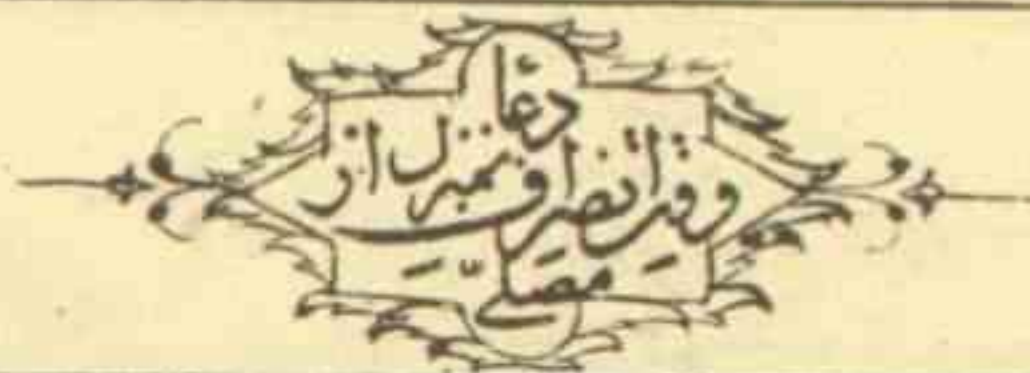 دعا
وقتِ انصرافِ بمنزل از
مصلّی